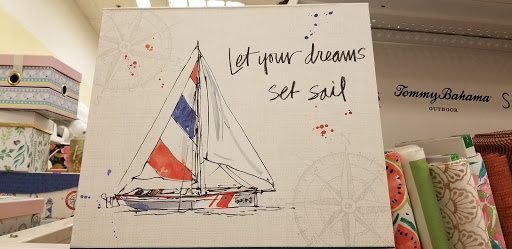 Let your dreams
set sail
Tommy Bahama
OUTDOOR